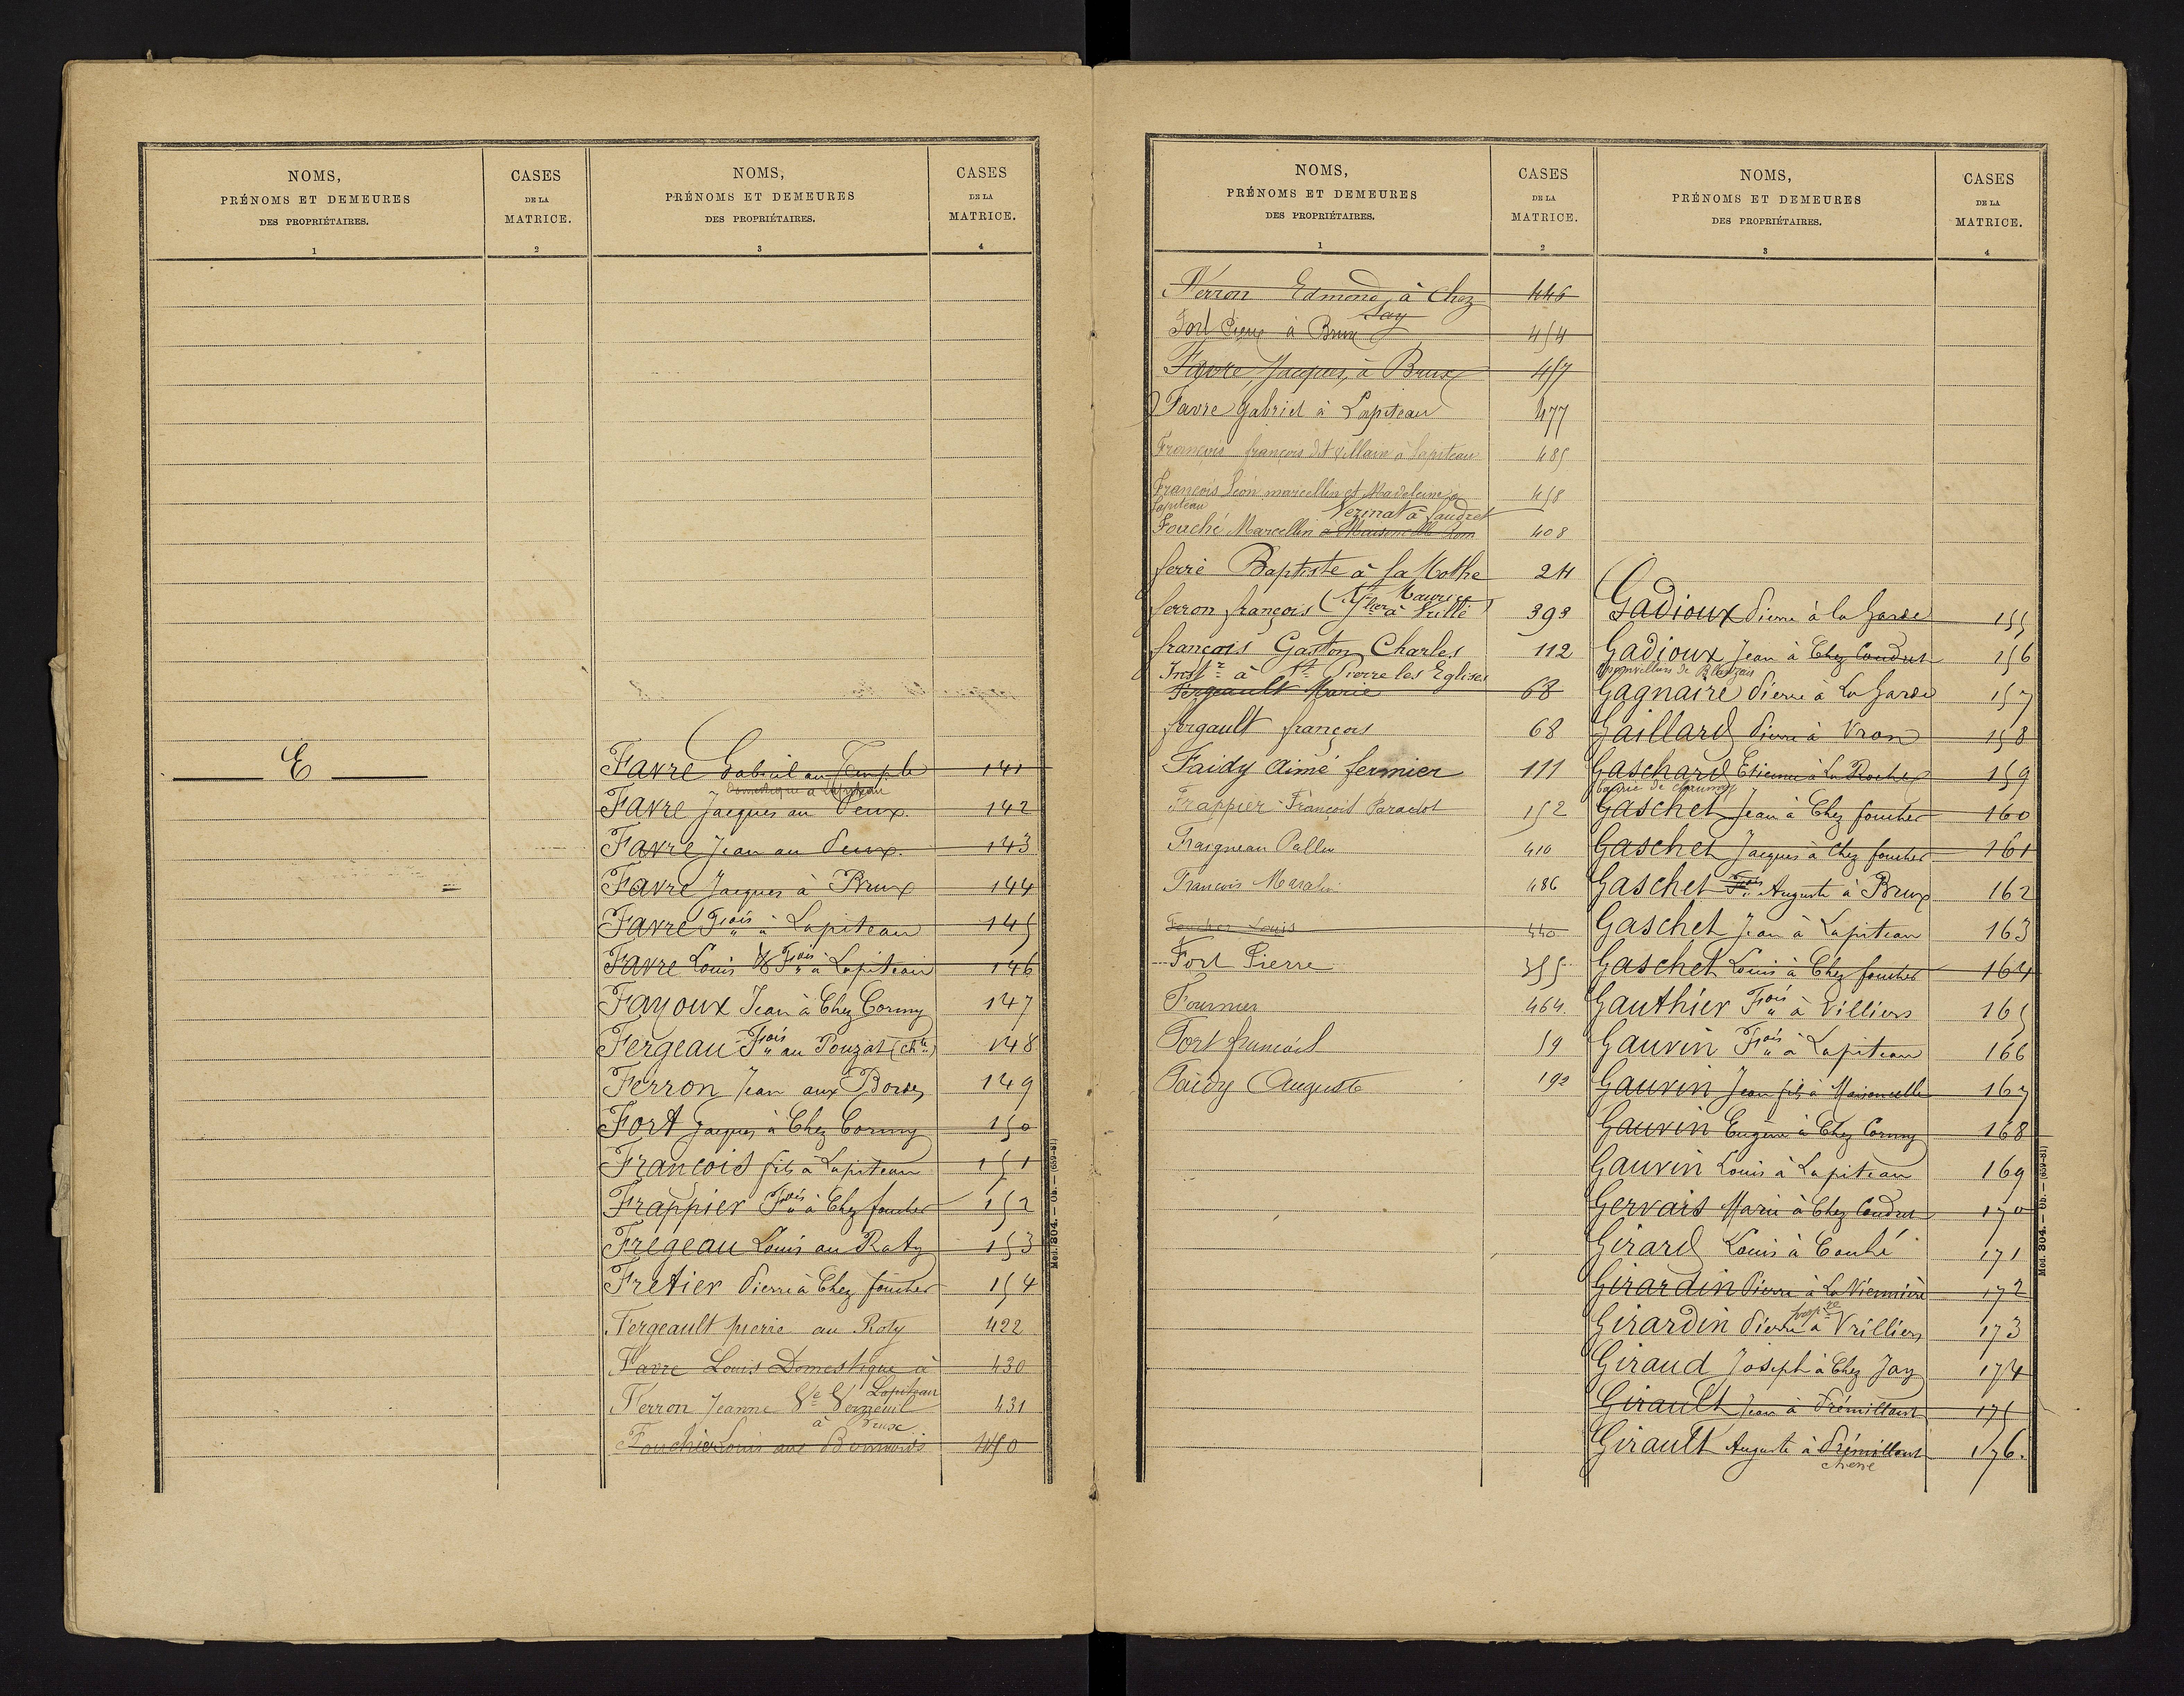 NOMS,
PRÉNOMS ET DEMEURES
DES PROPRIÉTAIRES.
1
CASES
DE LA
MATRICE.
2
NOMS,
PRÉNOMS ET DEMEURES
DES PROPRIÉTAIRES.
3
CASES
DE LA
MATRICE.
4
E
Favre Gabriel au Temple 141
Domestique à Lapiteau
Favre Jacques au Peux. 142
Favre Jean au Peux. 143
Favre Jacques à Brux 144
Favre Fçois à Lapiteau 145
Favre Louis Fçois à Lapiteau 146
Fayoux Jean à Chez Cormy 147
Fergeau Fçois au Pouzat 148
Ferron Jean aux Bordes 149
Fort Jacques à Chez Cormy 150
François fils à Lapiteau 151
Frappier Fçois à Chez foucher 152
Fregeau Louis au Raty 153
Fretier Pierre à Chez foucher 154
Fergeault pierre au Roty 422
Favre Louis Domestique à 430
Lapiteau
Ferron Jeanne Ve Verneuil 431
à Brux
Louis aux 450
Mod. 304. — Ob. — (659-81)
NOMS,
PRÉNOMS ET DEMEURES
DES PROPRIÉTAIRES.
1
CASES
DE LA
MATRICE.
2
NOMS,
PRÉNOMS ET DEMEURES
DES PROPRIÉTAIRES.
3
CASES
DE LA
MATRICE.
4
Ferron Edmond, à Chez 446
Jay
Fort Pierre à Brux 454
Favre, Jacques, à Brux 457
Favre Gabriel à Lapiteau 477
François françois dit Villain à Lapiteau 485
François Léon marcellin et Madeleine à 458
Lapiteau
Vezinat à Saudret
Fouché Marcellin à Maisoncelle 408
ferré Baptiste à La Mothe 24
Maurice
ferron françois à Vrillé 393
françois Gaston Charles 112
Instr à St Pierre les Eglises
Fergeault Marie 68
fergault françois 68
Faidy Aimé fermier 111
Frappier François 152
Fraigneau Pallu 410
François 486
Foucher Louis 440
Fort Pierre 355
Fournier 464
Fort françois 59
Faidy Auguste 192
Gadioux Pierre à la Garde 155
Gadioux Jean à Chez Coudret 156
Gagnaire Pierre à La Garde 157
Gaillard Pierre à Vron 158
Gaschard Etienne à La Roche 159
Gaschet Jean à Chez foucher 160
Gaschet Jacques à Chez foucher 161
Gaschet Fçois Auguste à Brux 162
Gaschet Jean à Lapiteau 163
Gaschet Louis à Chez foucher 164
Gauthier Fçois à Villiers 165
Gauvin Fçois à Lapiteau 166
Gauvin Jean fils à Maisoncelle 167
Gauvin Eugène à Chez Cormy 168
Gauvin Louis à Lapiteau 169
Gervais Marie à Chez Coudret 170
Girard Louis à Couhé 171
Girardin Pierre à La 172
Girardin Pierre à Vrilliers 173
Giraud Joseph à Chez Jay 174
Girault Jean à Prémillant 175
Girault Auguste à Prémillant 176.
Mod. 304. — Ob. — (659-81)